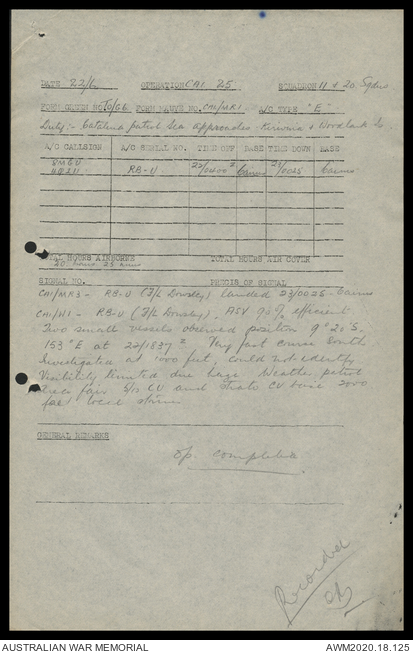 DATE 22/6 OPERATION CAI 25 SQUADRON 11 & 20 Sqdns
FORM GREEN NO. FORM MAUVE NO. CAI/MR1 A/C TYPE "E"
Duty:- Catalina patrol Sea approaches - Kiriwina & Woodlark Is.
A/C CALLSIGN A/C SERIAL NO. TIME OFF BASE TIME DOWN BASE
RB-U 22/0400 Z Cairns 23/0025 Cairns
TOTAL HOURS AIRBORNE TOTAL HOURS AIR COVER
20 hours 25 mins
SIGNAL NO. PRECIS OF SIGNAL
CAI/MR3 - RB-U (F/L Dowsley) landed 23/0025 - Cairns
CAI/W1 - RB-U (F/L Dowsley). ASV 90% efficient
Two small vessels observed position 9° 20' S.
153 °E at 22/1837 Z Very fast course South
Investigated at feet, could not identify
Visibility limited due haze. Weather patrol
area fair 5/10 CU and Strato CU base 2000
feet local storms
GENERAL REMARKS
Op. completed
Recorded
AUSTRALIAN WAR MEMORIAL AWM2020.18.125